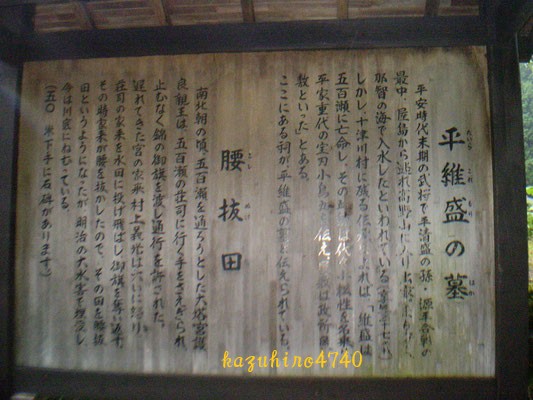 平維盛の墓
たいらの これ もり はか
平安時代末期の武将で平清盛の孫・源平合戦の
最中、屋島から逃れ高野山に入り出家
那智の海で入水したといわれている
しかし、十津川村に残る伝
れば、維盛は
五百瀬に亡命し、その
代々小松姓を名乗
平家重代の宝刀小烏丸
伝え
教といった」とある。
ここにある祠が平維盛の墓と伝えられている。
腰抜田
こし ぬけ だ
南北朝の頃、五百瀬を通ろうとした大塔宮護
良親王は、五百瀬の荘司に行く手をさえぎられ、
止むなく錦の御旗を渡し通行を許された。
遅れてきた宮の家来村上義光は大いに怒り、
荘司の家来を水田に投げ飛ばし御旗を奪い返す。
その時家来が腰を抜かしたので、その田を腰抜
田というようになったが、明治の大水害で埋没し、
今は川底にねむっている。
(五〇 米下手に石碑があります。)
kazuhiro4740